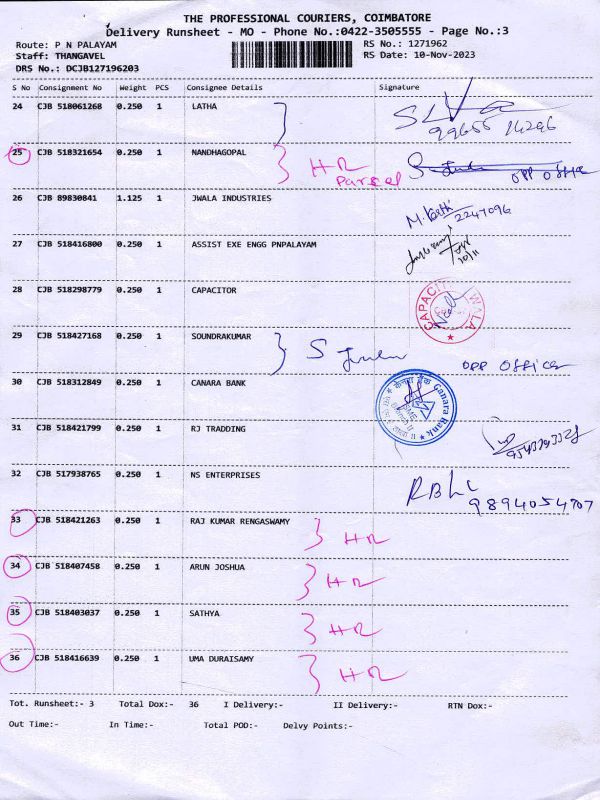 THE PROFESSIONAL COURIERS, COIMBATORE
Delivery Runsheet - MO - Phone No.:0422-3505555 - Page No.:3
Route: P N PALAYAM RS No.: 1271962
Staff: THANGAVEL RS Date: 10-Nov-2023
DRS No.: DCJB127196203
S No Consignment No Weight PCS Consignee Details Signature
24 CJB 518061268 0.250 1 LATHA
25 CJB 518321654 0.250 1 NANDHAGOPAL HR
Parcel OPP OFFICE
26 CJB 89830841 1.125 1 JWALA INDUSTRIES
2247096
27 CJB 518416800 0.250 1 ASSIST EXE ENGG PNPALAYAM
28 CJB 518298779 0.250 1 CAPACITOR
29 CJB 518427168 0.250 1 SOUNDRAKUMAR OPP OFFICE
30 CJB 518312849 0.250 1 CANARA BANK केनरा बैंक Canara Bank
31 CJB 518421799 0.250 1 RJ TRADDING
32 CJB 517938765 0.250 1 NS ENTERPRISES
9894054707
33 CJB 518421263 0.250 1 RAJ KUMAR RENGASWAMY HR
34 CJB 518407458 0.250 1 ARUN JOSHUA HR
35 CJB 518403037 0.250 1 SATHYA HR
36 CJB 518416639 0.250 1 UMA DURAISAMY HR
Tot. Runsheet:- 3 Total Dox:- 36 I Delivery:- II Delivery:- RTN Dox:-
Out Time:- In Time:- Total POD:- Delvy Points:-